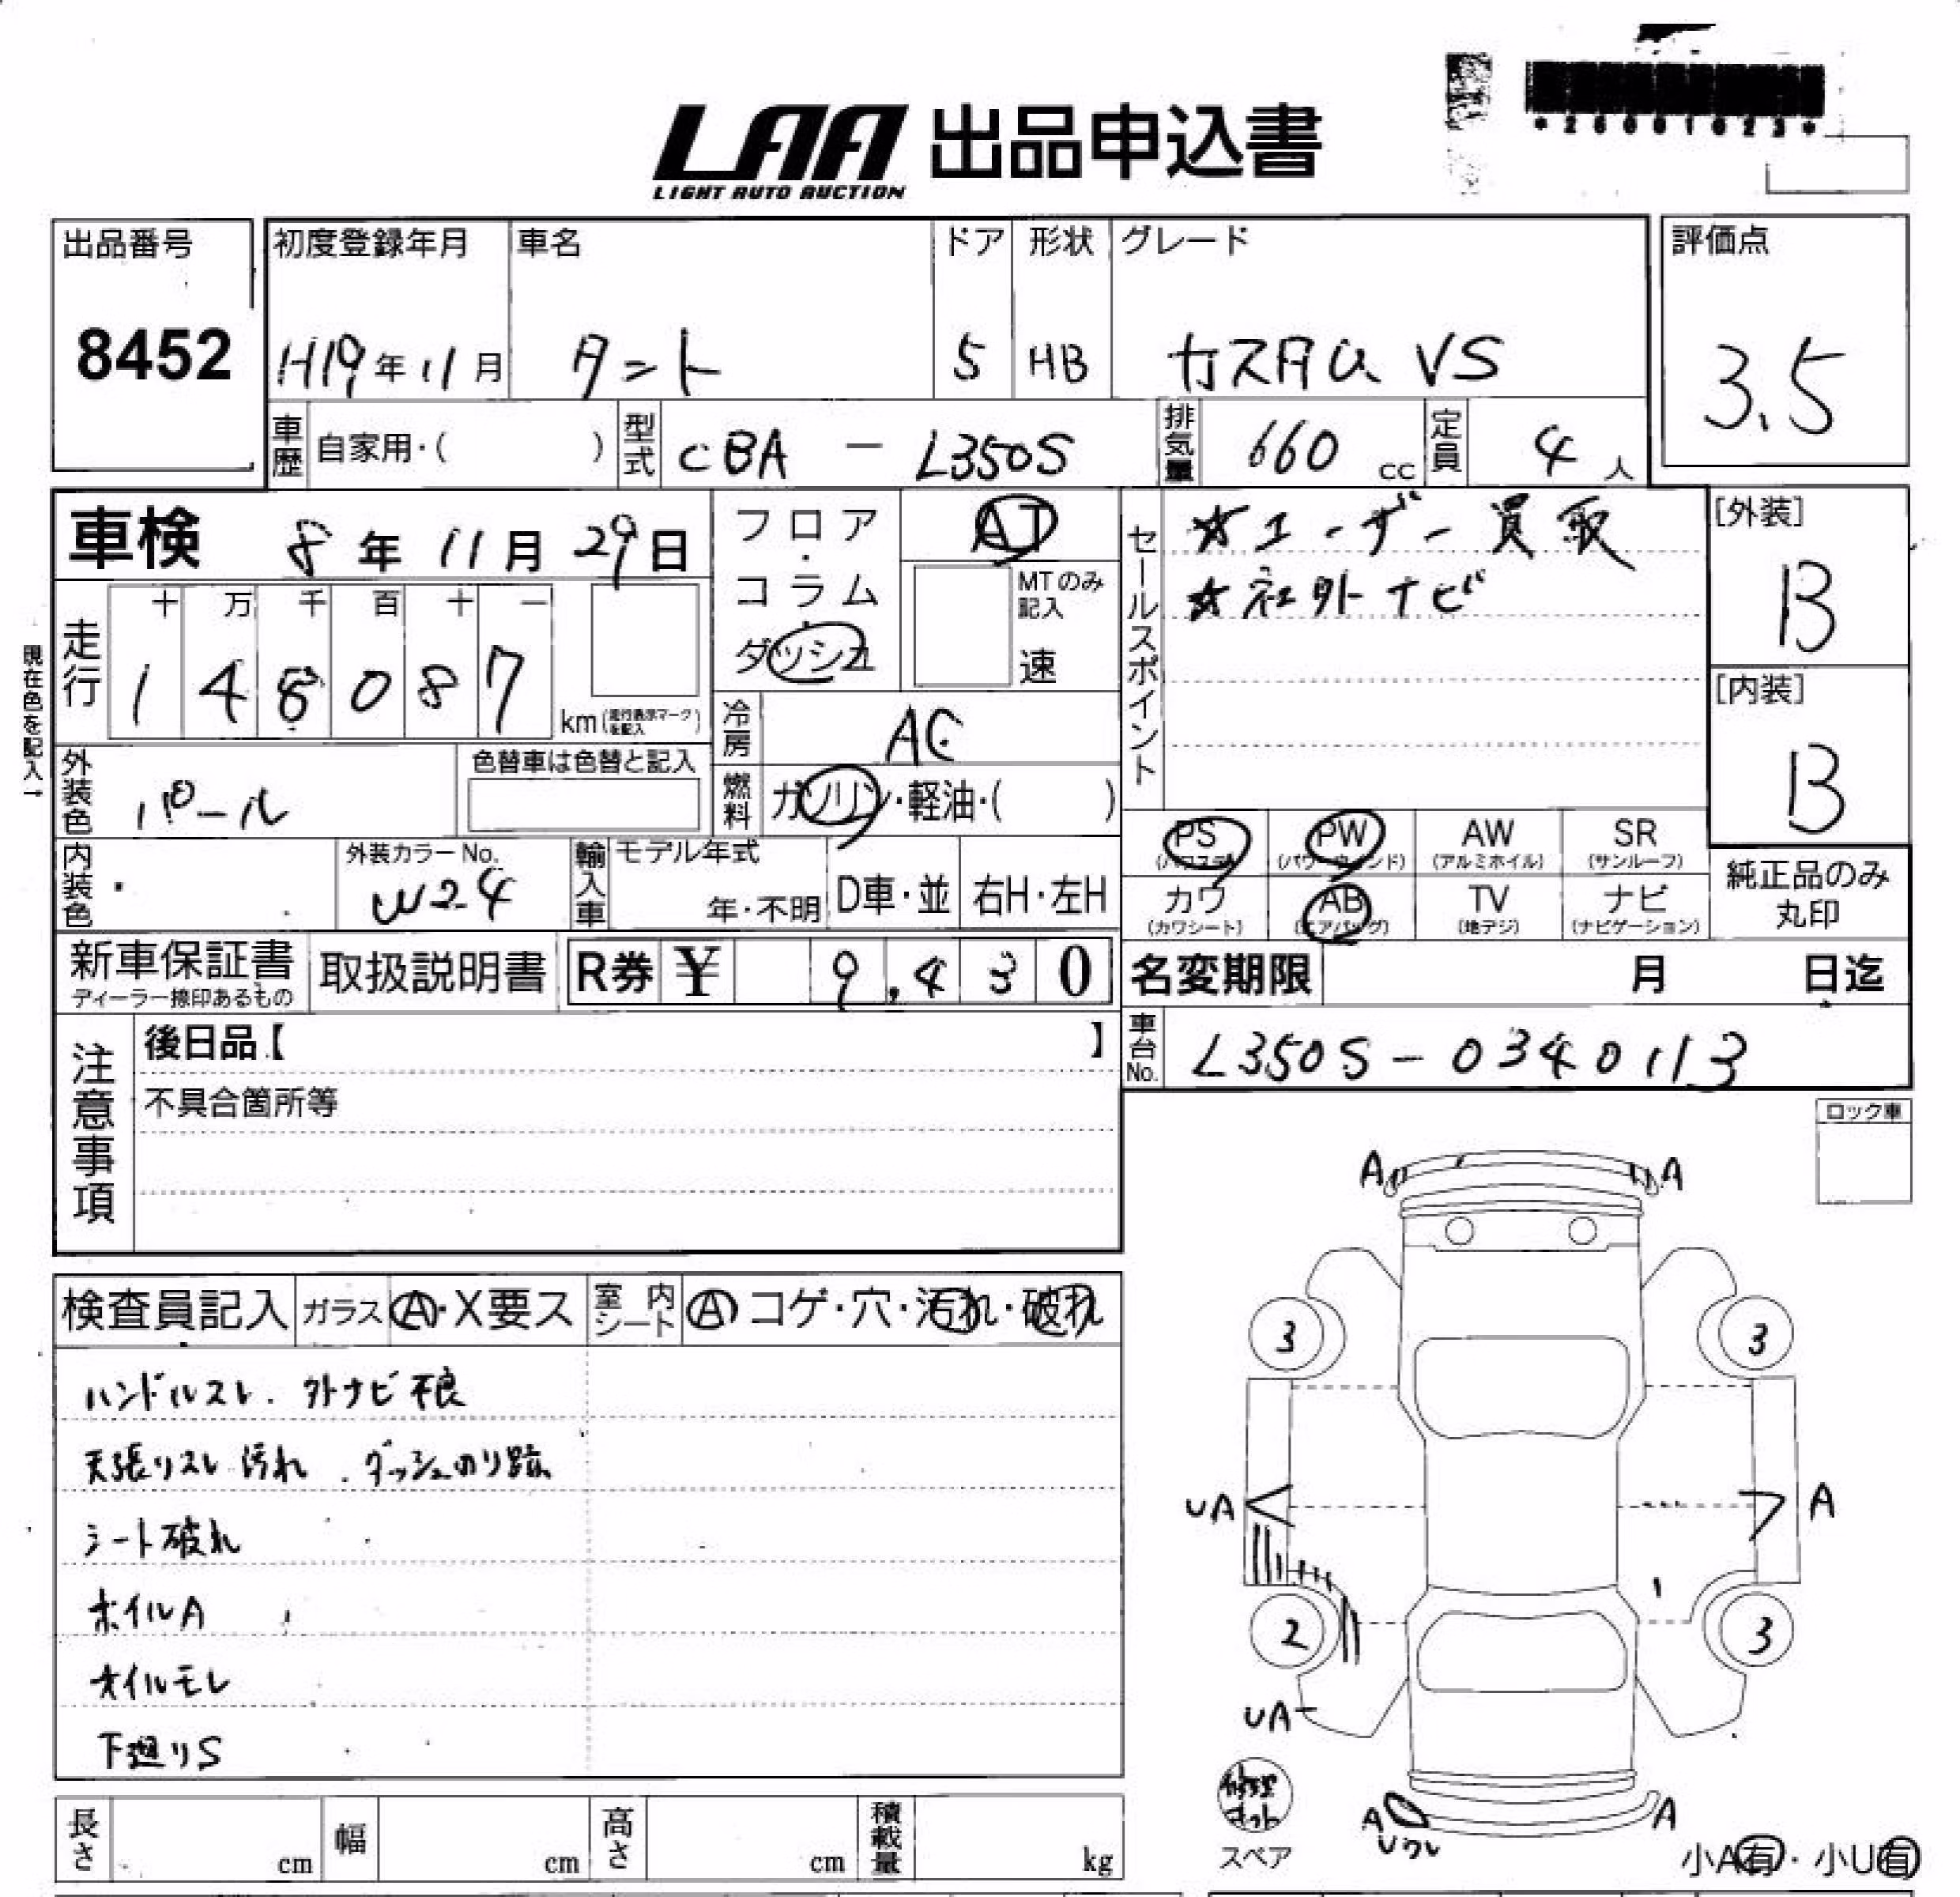 *26001023*
LAA 出品申込書
LIGHT AUTO AUCTION
出品番号 初度登録年月 車名 ドア 形状 グレード 評価点
8452 H19年11月 タント 5 HB カスタム VS 3.5
車歴 自家用・( ) 型式 CBA - L350S 排気量 660 cc 定員 4 人
車検 8年11月29日
フロア・コラム・ダッシュ
AT
MTのみ記入
速
セールスポイント
☆ユーザー買取
☆社外ナビ
[外装]
B
[内装]
B
現在色を記入→
走行 十 万 千 百 十 一
148087
km(走行表示マークを記入)
冷房 AC
外装色 パール 色替車は色替と記入
燃料 ガソリン・軽油・( )
PS (パワステ) PW (パワーウィンド) AW (アルミホイル) SR (サンルーフ)
カワ (カワシート) AB (エアバッグ) TV (地デジ) ナビ (ナビゲーション)
純正品のみ丸印
内装色 外装カラーNo. W24 輸入車 モデル年式 年・不明 D車・並 右H・左H
新車保証書 ディーラー捺印あるもの 取扱説明書 R券 ¥ 9,430
名変期限 月 日迄
注意事項
後日品【 】
不具合箇所等
車台No. L350S-0340113
ロック車
検査員記入 ガラス A・X要ス 室内シート A コゲ・穴・汚れ・破れ
ハンドルスレ. 外ナビ不良
天張リスレ 汚れ . ダッシュのり跡
シート破れ
ホイルA
オイルモレ
下廻りS
A A
3 3
UA A
2 3
UA
修理キット
スペア
A A
Uワレ
小A有・小U有
長さ cm 幅 cm 高さ cm 積載量 kg